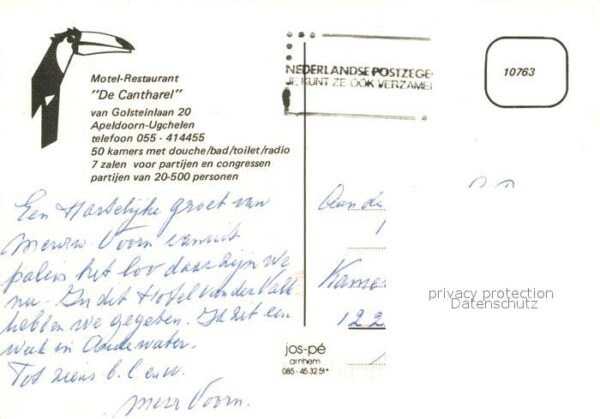 Motel-Restaurant
"De Cantharel"
van Golsteinlaan 20
Apeldoorn-Ugchelen
telefoon 055 - 414455
50 kamers met douche/bad/toilet/radio
7 zalen voor partijen en congressen
partijen van 20-500 personen
Een Hartelijke groet van
Mevrw Voorn vanuit
paleis het loo daar zijn we
nu. In dit Hotel van der Valk
hebben we gegeten. Ik zit een
week in Oudewater.
Tot ziens b.l.e.w.
Mevr Voorn.
NEDERLANDSE POSTZEGE
JE KUNT ZE OOK VERZAMEL
10763
Aan de
Kamer
122
jos-pé
arnhem
085-45 32 51*
privacy protection
Datenschutz